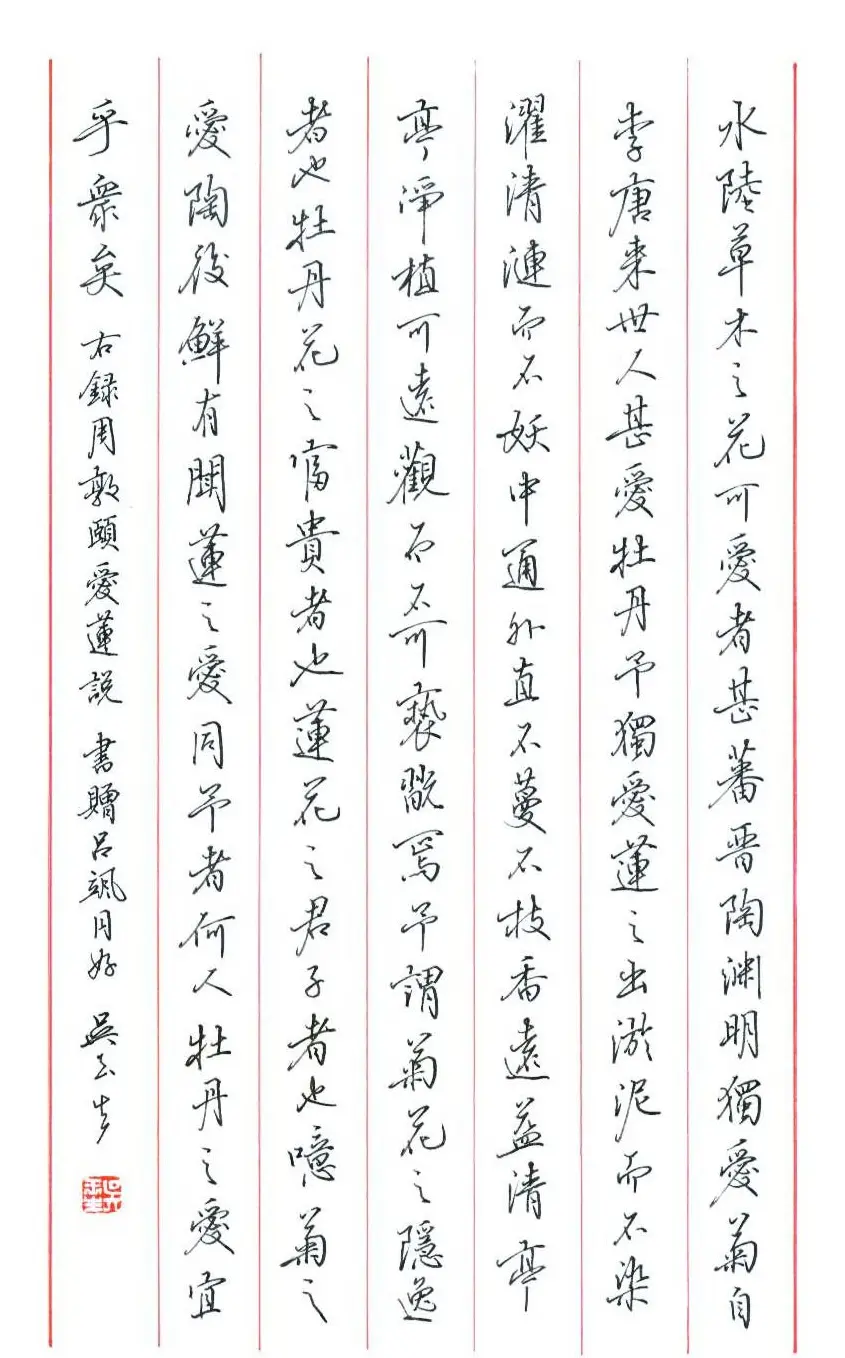 水陸草木之花可愛者甚蕃晋陶渊明獨愛菊自
李唐来世人甚愛牡丹予獨愛蓮之出淤泥而不染
濯清漣而不妖中通外直不蔓不枝香遠益清亭
亭淨植可遠觀而不可褻翫焉予謂菊花之隱逸
者也牡丹花之富貴者也蓮花之君子者也噫菊之
愛陶後鮮有聞蓮之愛同予者何人牡丹之愛宜
乎眾矣 右録周敦頤愛蓮説 書贈吕颯同好 吴玉生